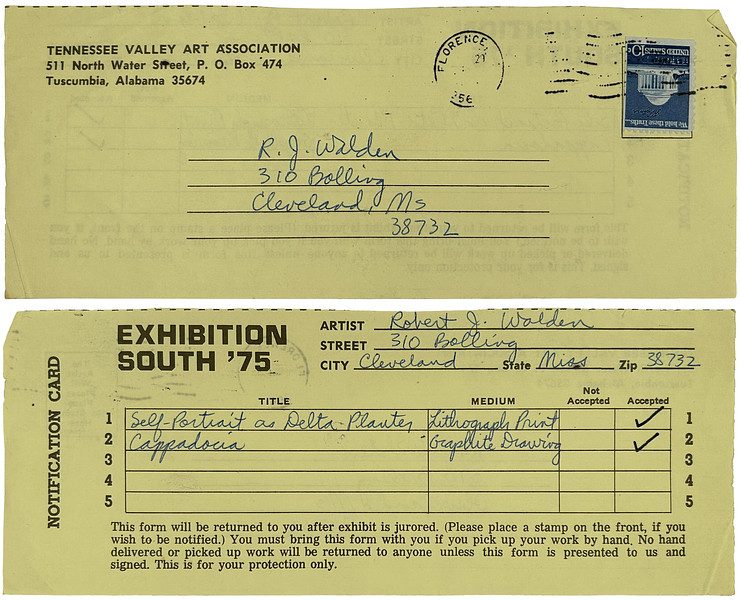 TENNESSEE VALLEY ART ASSOCIATION
511 North Water Street, P. O. Box 474
Tuscumbia, Alabama 35674
FLORENCE,
21
356
UNITED STATES 10c
We hold these Truths...
R. J. Walden
310 Bolling
Cleveland, Ms
38732
NOTIFICATION CARD
EXHIBITION
SOUTH '75
ARTIST Robert J. Walden
STREET 310 Bolling
CITY Cleveland State Miss Zip 38732
TITLE MEDIUM Not Accepted Accepted
1 Self-Portrait as Delta-Planter Lithograph Print ✓ 1
2 Cappadocia Graphite Drawing ✓ 2
3 3
4 4
5 5
This form will be returned to you after exhibit is jurored. (Please place a stamp on the front, if you
wish to be notified.) You must bring this form with you if you pick up your work by hand. No hand
delivered or picked up work will be returned to anyone unless this form is presented to us and
signed. This is for your protection only.